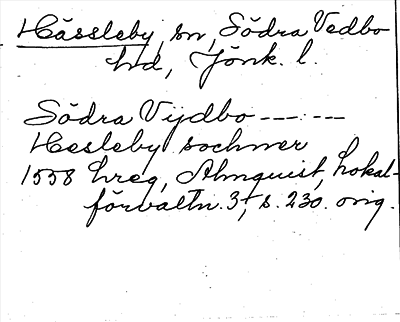 Hässleby, sn, Södra Vedbo
hd, Jönk. l.
Södra Vijdbo --- . ---
Hesleby sochner
1558 hreg, Almquist, Lokal-
förvaltn. 3, s. 230. orig.